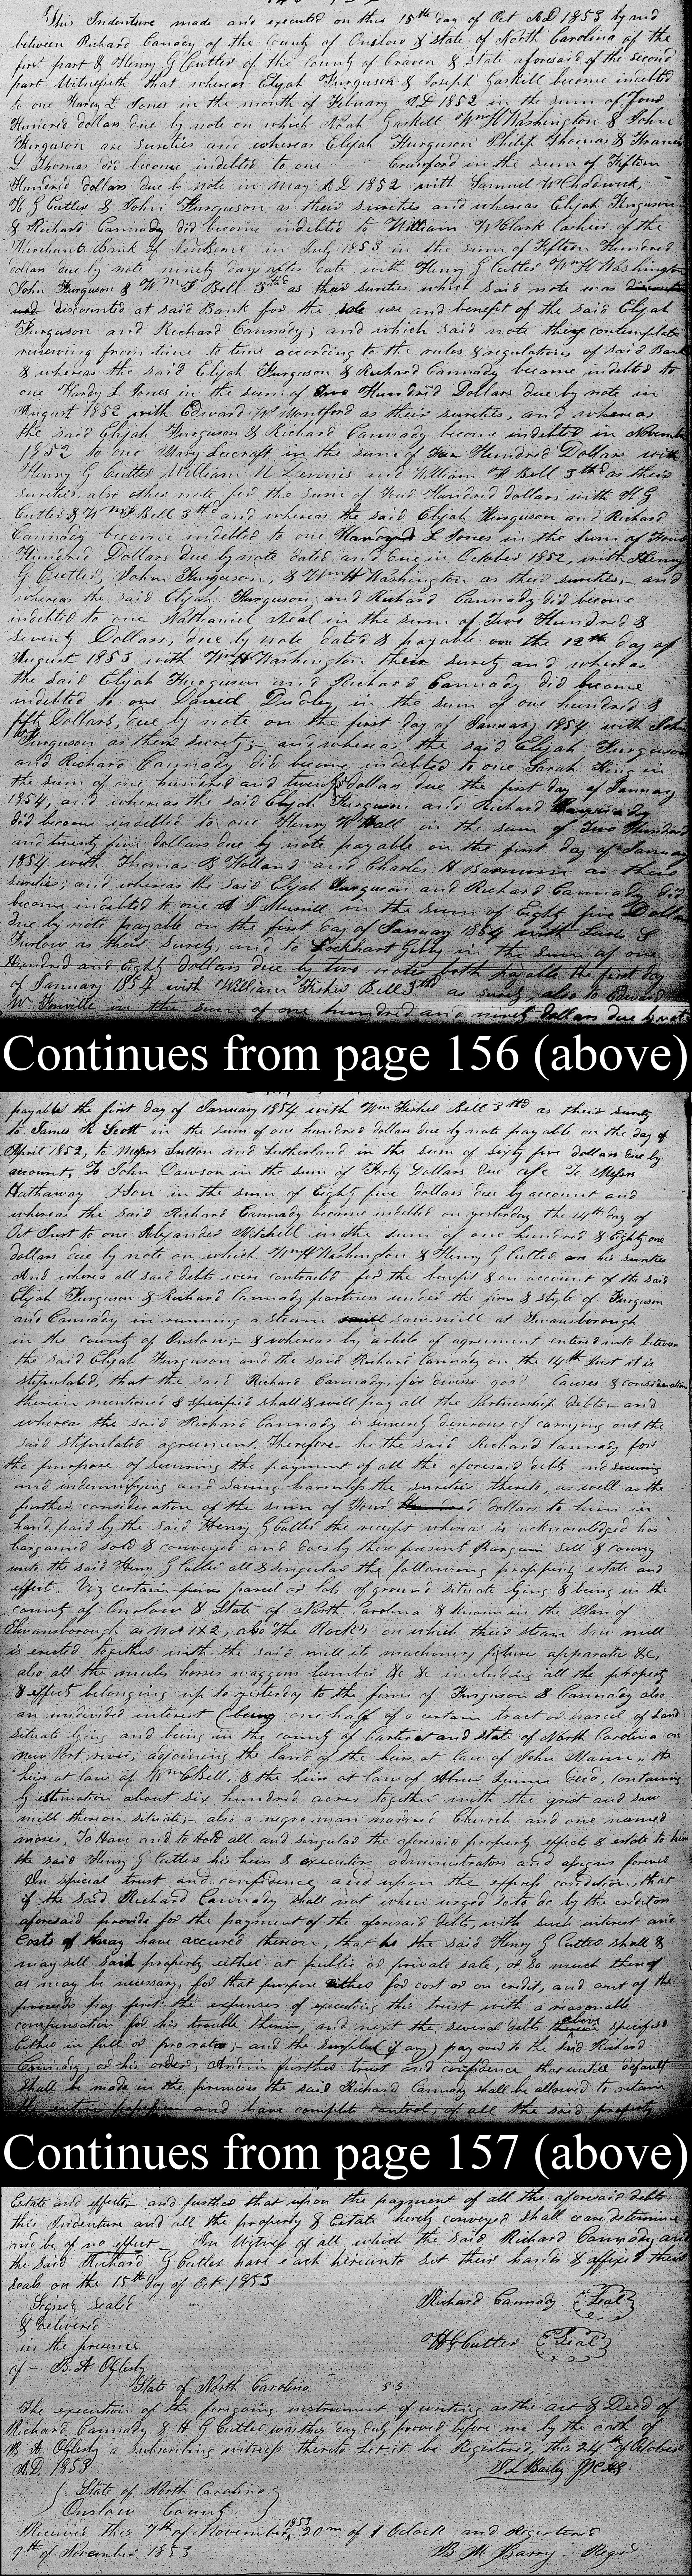 This Indenture made and executed on this 15th day of Oct AD 1853 by and
between Richard Canady of the County of Onslow & State of North Carolina of the
first part & Henry G Cutler of the County of Craven & State aforesaid of the second
part Witnesseth that whereas Elijah Furguson & Joseph Gaskill become indebted
to one Hardy L Jones in the month of February AD 1852 in the sum of Four
Hundred dollars due by note on which Noah Gaskell Wm H Washington & John
Furguson are sureties and whereas Elijah Furguson Philip Thomas & Francis
L Thomas did become indebted to one Crawford in the sum of Fifteen
Hundred dollars due by note in May AD 1852 with Samuel W Chadwick,
H G Cutler & John Furguson as their sureties and whereas Elijah Furguson
& Richard Cannady did become indebted to William W Clark Cashier of the
Merchants Bank of Newberne in July 1853 in the sum of Fifteen Hundred
dollars due by note ninety days after date with Henry G Cutler Wm H Washington
John Furguson & Wm F Bell 3rd as their sureties which said note was
discounted at said Bank for the sole use and benefit of the said Elijah
Furguson and Richard Cannady; and which said note they contemplate
renewing from time to time according to the rules & regulations of said Bank
& whereas the said Elijah Furguson & Richard Cannady became indebted to
one Hardy L Jones in the sum of Two Hundred Dollars due by note in
August 1852 with Edward W Montford as their sureties, and whereas
the said Elijah Furguson & Richard Cannady become indebted in November
1852 to one Mary Leecraft in the sum of Hundred Dollars with
Henry G Cutler William N Dennis and William F Bell 3rd as their
sureties also other note for the sum of Four Hundred dollars with H G
Cutler & Wm F Bell 3rd and whereas the said Elijah Furguson and Richard
Cannady become indebted to one L Jones in the sum of Four
Hundred Dollars due by note dated and due in October 1852, with Henry
G Cutler, John Furguson, & Wm H Washington as their sureties, and
whereas the said Elijah Furguson and Richard Cannady did become
indebted to one Nathaniel Neal in the sum of Two Hundred &
Seventy Dollars, due by note dated & payable on the 12th day of
August 1853 with Wm H Washington their surety and whereas
the said Elijah Furguson and Richard Cannady did become
indebted to one David Dudley in the sum of one hundred &
fifty Dollars, due by note on the first day of January 1854 with John
Furguson as their surety; and whereas the said Elijah Furguson
and Richard Cannady did become indebted to one Sarah King in
the sum of one hundred and twenty dollars due the first day of January
1854, and whereas the said Elijah Furguson and Richard Cannady
did become indebted to one Henry W Hall in the sum of Two Hundred
and twenty five dollars due by note payable on the first day of January
1854 with Thomas B Holland and Charles H Barnum as their
sureties; and whereas the said Elijah Furguson and Richard Cannady did
become indebted to one J Murrill in the sum of Eighty five Dollars
due by note payable on the first day of January 1854 with L
Furlow as their surety, and to Lockhart Gibby in the sum of one
Hundred and Eighty dollars due by two notes both payable the first day
of January 1854 with William Fisher Bell 3rd as surety, also to Edward
W Fonville in the sum of one hundred and ninety dollars due by note
Continues from page 156 (above)
payable the first day of January 1854 with Wm Fisher Bell 3rd as their surety
to James R Scott in the sum of one hundred dollars due by note payable on the day of
April 1852, to Messrs Sutton and Sutherland in the sum of sixty five dollars due by
account, To John Dawson in the sum of Forty Dollars due To Messrs
Hathaway & Son in the sum of Eighty five dollars due by account and
whereas the said Richard Cannady became indebted on yesterday the 14th day of
Oct Inst to one Alexander Mitchell in the sum of one hundred & Eighty one
dollars due by note on which Wm H Washington & Henry G Cutler are his sureties
And whereas all said debts were contracted for the benefit & on account of the said
Elijah Furguson & Richard Cannady partners under the firm & style of Furguson
and Cannady in running a steam saw mill at Swansborough
in the county of Onslow; & whereas by article of agreement entered into between
the said Elijah Furguson and the said Richard Cannady on the 14th Inst it is
stipulated, that the said Richard Cannady, for divine good causes & consideration
therein mentioned & specified shall & will pay all the Partnership debts and
whereas the said Richard Cannady is sincerely desirous of carrying out the
said stipulated agreement. Therefore he the said Richard Cannady for
the purpose of securing the payment of all the aforesaid debts and securing
and indemnifying and saving harmless the sureties thereto, as well as the
further consideration of the sum of Four dollars to him in
hand paid by the said Henry G Cutler the receipt whereas is acknowledged has
bargained sold & conveyed and does by these present Bargain Sell & convey
unto the said Henry G Cutler all & singular the following property estate and
effect. Viz certain parcel or lots of ground situate lying & being in the
county of Onslow & State of North Carolina & known in the Plan of
Swansborough as nos 1 & 2, also "the Rocks" on which their steam saw mill
is erected together with the said mill its machinery fixture apparatus &c,
also all the mules horses waggons lumber &c &c including all the property
& effects belonging up to yesterday to the firm of Furguson & Cannady also
an undivided interest (being one half of a certain tract or parcel of land
situate lying and being in the county of Carteret and state of North Carolina on
new Port river, adjoining the land of the heirs at law of John Mann, the
heirs at law of Wm C Bell, & the heirs at law of Abner Quinn decd, containing
by estimation about six hundred acres together with the grist and saw
mill thereon situate; also a negro man named Church and one named
moses, To Have and to Hold all and singular the aforesaid property effects & estate to him
the said Henry G Cutler his heirs & executors administrators and assigns forever
In special trust and confidence and upon the express condition, that
if the said Richard Cannady shall not when urged so to do by the creditors
aforesaid provide for the payment of the aforesaid debts, with such interest and
costs as may have accrued thereon, that he the said Henry G Cutler shall &
may sell said property either at public or private sale, or so much thereof
as may be necessary, for that purpose either for cost or on credit, and out of the
proceeds pay first the expenses of executing this trust with a reasonable
compensation for his trouble therein, and next the several debts above specified
Either in full or pro rata; and the surplus (if any) pay over to the said Richard
Cannady, or his order, And in further trust and confidence that until default
shall be made in the premises the said Richard Cannady shall be allowed to retain
the entire possession and have complete control, of all the said property
Continues from page 157 (above)
Estate and effects; and further that upon the payment of all the aforesaid debts
this Indenture and all the property & Estate hereby conveyed shall cease determine
and be of no effect In Witness of all which the said Richard Cannady and
the said Richard G Cutler have each hereunto set their hands & affixed their
seals on the 15th day of Oct 1853
Signed Sealed Richard Cannady (Seal)
& Delivered
in the presence H G Cutler (Seal)
of - B. A Oglesby
State of North Carolina SS
The execution of the foregoing instrument of writing as the act & Deed of
Richard Cannady & H G Cutler was this day duly proved before me by the oath of
B A Oglesby a subscribing witness thereto let it be Registered, this 24th of October
A.D. 1853 J L Bailey JSCLE
State of North Carolina
Onslow County
Received this 7th of November 1853 20m of 1 Oclock and Registered
9th of November 1853 B M Barry Regr